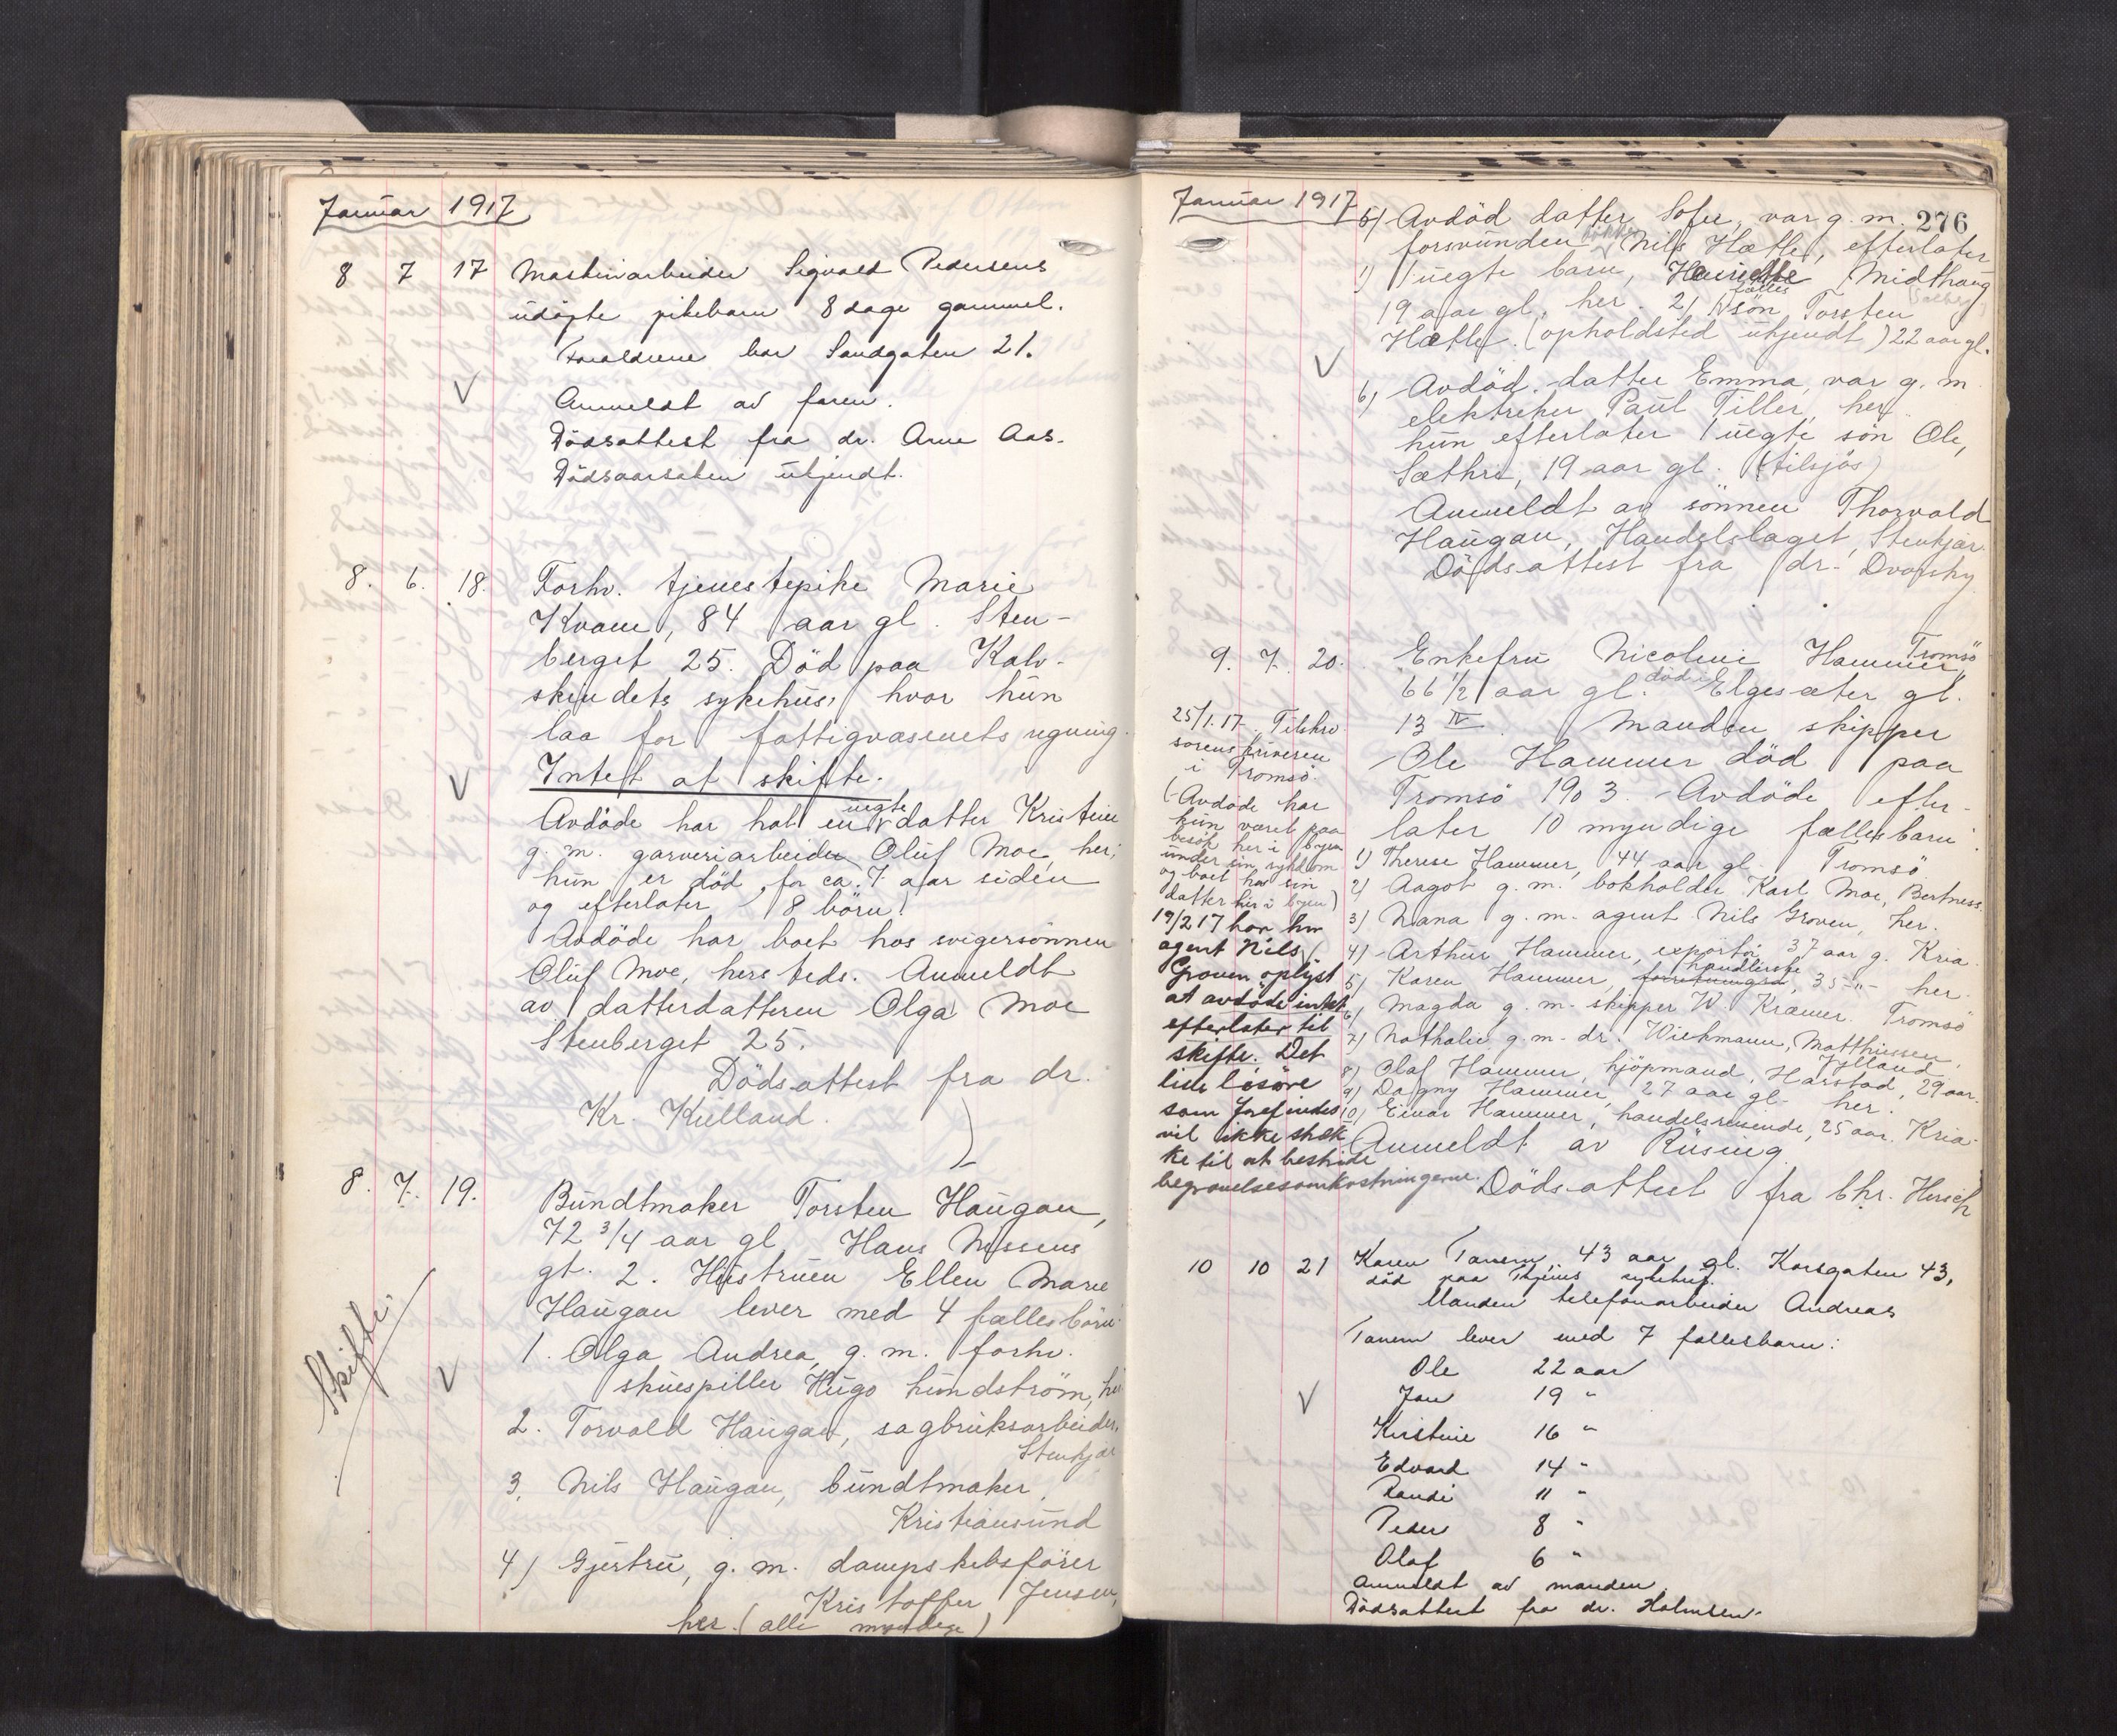 Januar 1917
8 7 17 Maskinarbeider Sigvald Pedersens
udöpte pikebarn 8 dage gammel.
Forældrene bor Sandgaten 21.
Anmeldt av faren.
Dödsattest fra dr. Arne Aas.
Dödsaarsaken ukjendt.
8. 6. 18. Forhv. tjenestepike Marie
Kvam, 84 aar gl. Sten-
berget 25. Död paa Kalv-
skindets sykehus, hvor hun
laa for fattigvæsenets regning.
Intet at skifte.
Avdöde har hat en uegte datter Kristine
g. m. garveriarbeider Oluf Moe, her;
hun er död for ca. 7 aar siden
og efterlater 8 börn.
Avdöde har boet hos svigersønnen
Oluf Moe, hersteds. Anmeldt
av datterdatteren Olga Moe
Stenberget 25.
Dödsattest fra dr.
Kr. Kielland.
8. 7. 19. Bundtmaker Torsten Haugan,
72 3/4 aar gl Hans Nissens
gt. 2. Hustruen Ellen Marie
Haugan lever med 4 fællesbörn:
1. Olga Andrea, g. m. forhv.
skuespiller Hugo Lundström, her
2. Torvald Haugan, sagbruksarbeider,
Stenkjær
3. Nils Haugan, bundtmaker,
Kristiansund
4) Gjertru, g. m. dampskibsförer
Kristoffer Jensen,
her. (alle myndige)
Skifte.
Januar 1917
276
5) Avdöd datter Sofie, var g. m.
forsvunden Nils Hætle, efterlater
1) 1 uegte barn, Midthaug
19 aar gl. her. 2) 1 fælles sön Torsten
Hætle. (opholdsted ukjendt) 22 aar gl.
6) Avdöd datter Emma, var g. m.
elektriker Paul Tiller, her.
hun efterlater 1 uegte sön Ole,
Sæthre, 19 aar gl. (tilsjös)
Anmeldt av sönnen Thorvald
Haugan, Handelslaget, Stenkjær.
Dödsattest fra dr. Dvorsky
9. 7. 20. Enkefru Nicoline Hammer, Tromsö
66 1/2 aar gl. död i Elgesæter gt.
13 IV. Manden skipper
Ole Hammer död paa
Tromsö 1903. Avdöde efter-
later 10 myndige fællesbarn:
1) Therese Hammer, 44 aar gl. Tromsö.
2) Aagot g. m. bokholder Karl Moe, Bertness.
3) Nana g. m. agent Nils Groven, her.
4) Arthur Hammer, exportör 37 aar g. Kria.
5) Karen Hammer, handlerske, 35 -"- her.
6) Magda g. m. skipper W. Kræmer. Tromsö
7) Nathalie g. m. dr. Wiehmann, Matthiessen, Jylland.
8) Olaf Hammer, kjöpmand, Harstad, 29 aar.
9) Dagny Hammer, 27 aar gl. her.
10) Einar Hammer, handelsreisende, 25 aar. Kria.
Anmeldt av Rüsing.
Dödsattest fra Chr. Hirsch
25/1.17. Tilskr.
sorenskriveren
i Tromsö.
(Avdöde har
kun været paa
besök her i byen
under sin sykdom
og boet hos sin
datter her i byen)
19/2 17 har hr
agent Nils
Groven oplyst
at avdöde intet
efterlater til
skifte. Det
lille lösöre
som forefindes
vil ikke stræk
ke til at bestride
begravelsesomkostningerne.
10 10 21 Karen Tanem, 43 aar gl. Korsgaten 43,
död paa Thjems sykehus.
Manden telefonarbeider Andreas
Tanem lever med 7 fællesbarn:
Ole 22 aar
Jan 19 "
Kirstine 16 "
Edvard 14 "
Randi 11 "
Peder 8 "
Olaf 6 "
Anmeldt av manden.
Dödsattest fra dr. Holmsen.